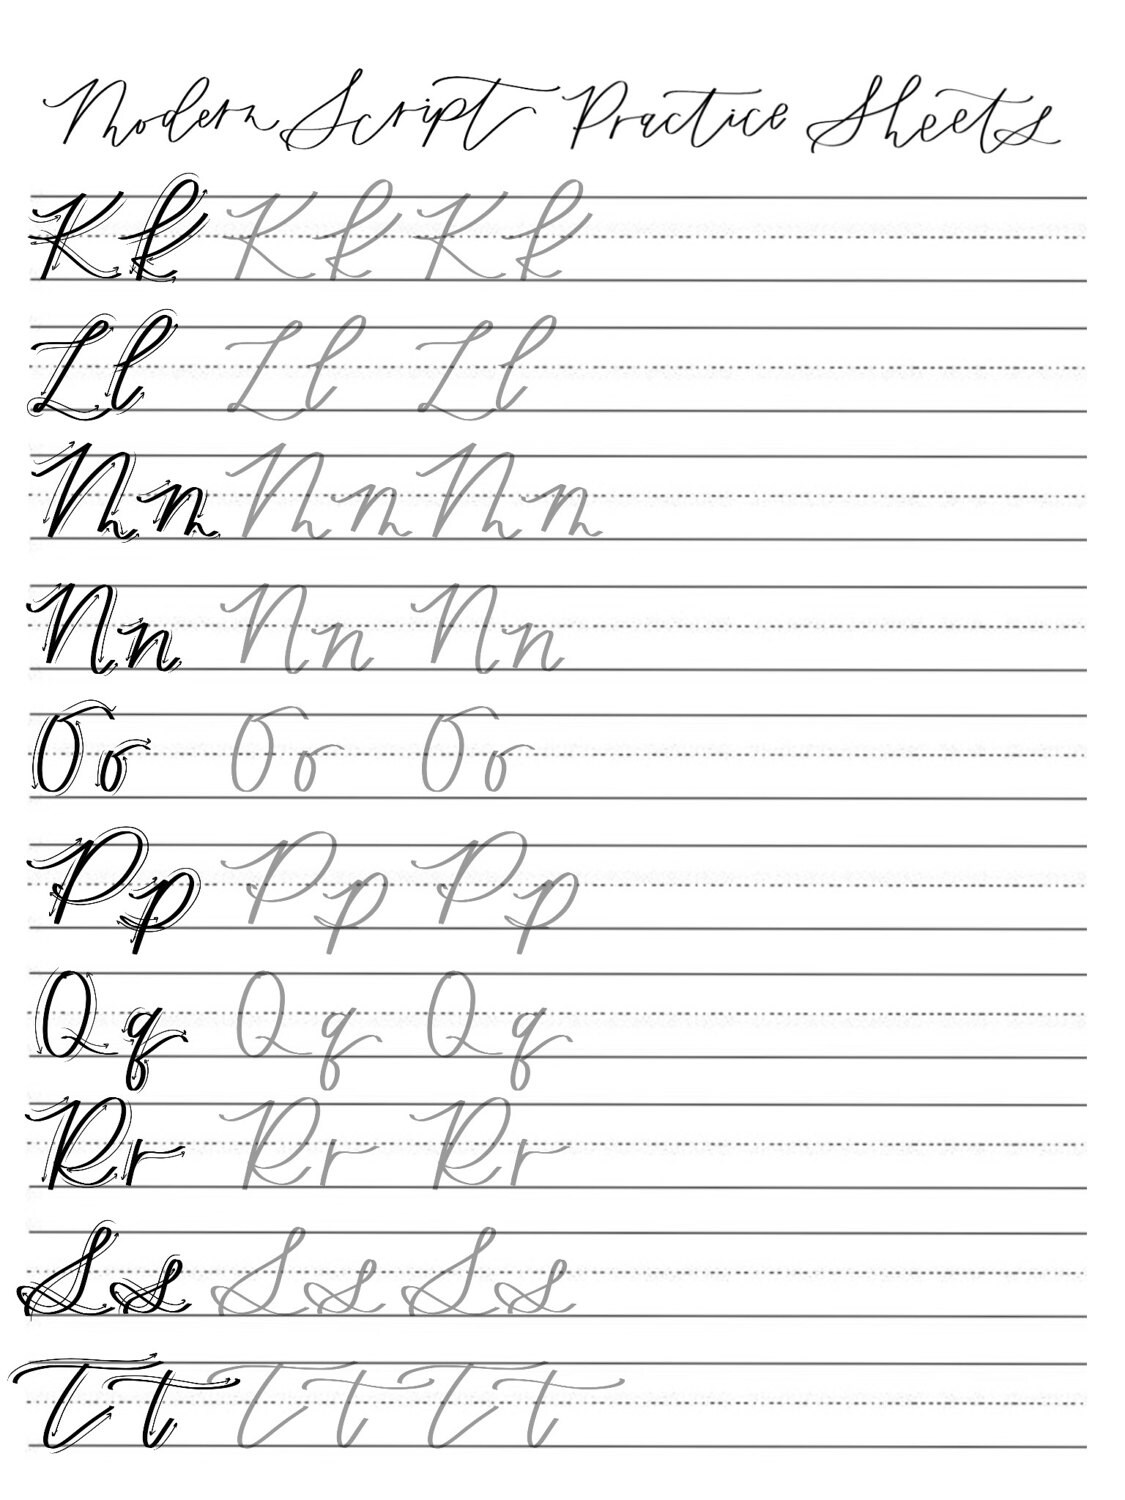 Modern Script Practice Sheets
Kk Kk Kk
Ll Ll Ll
Mm Mm Mm
Nn Nn Nn
Oo Oo Oo
Pp Pp Pp
Qq Qq Qq
Rr Rr Rr
Ss Ss Ss
Tt Tt Tt